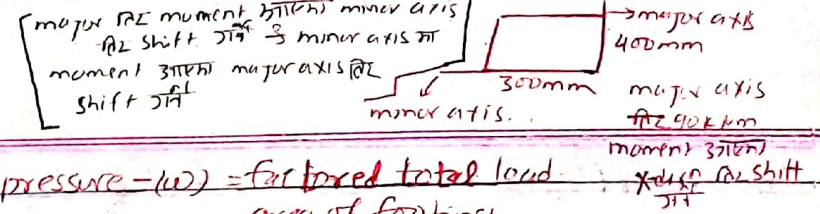 [major तिर moment आएमा minor axis
तिर shift गर्ने र minor axis मा
moment आएमा major axis तिर
shift गर्ने ]
→major axis
400mm
300mm
minor axis.
major axis
तिर 90kNm
moment आएमा
तिर shift
गर्ने
pressure-(w)) = factored total load
area of footing